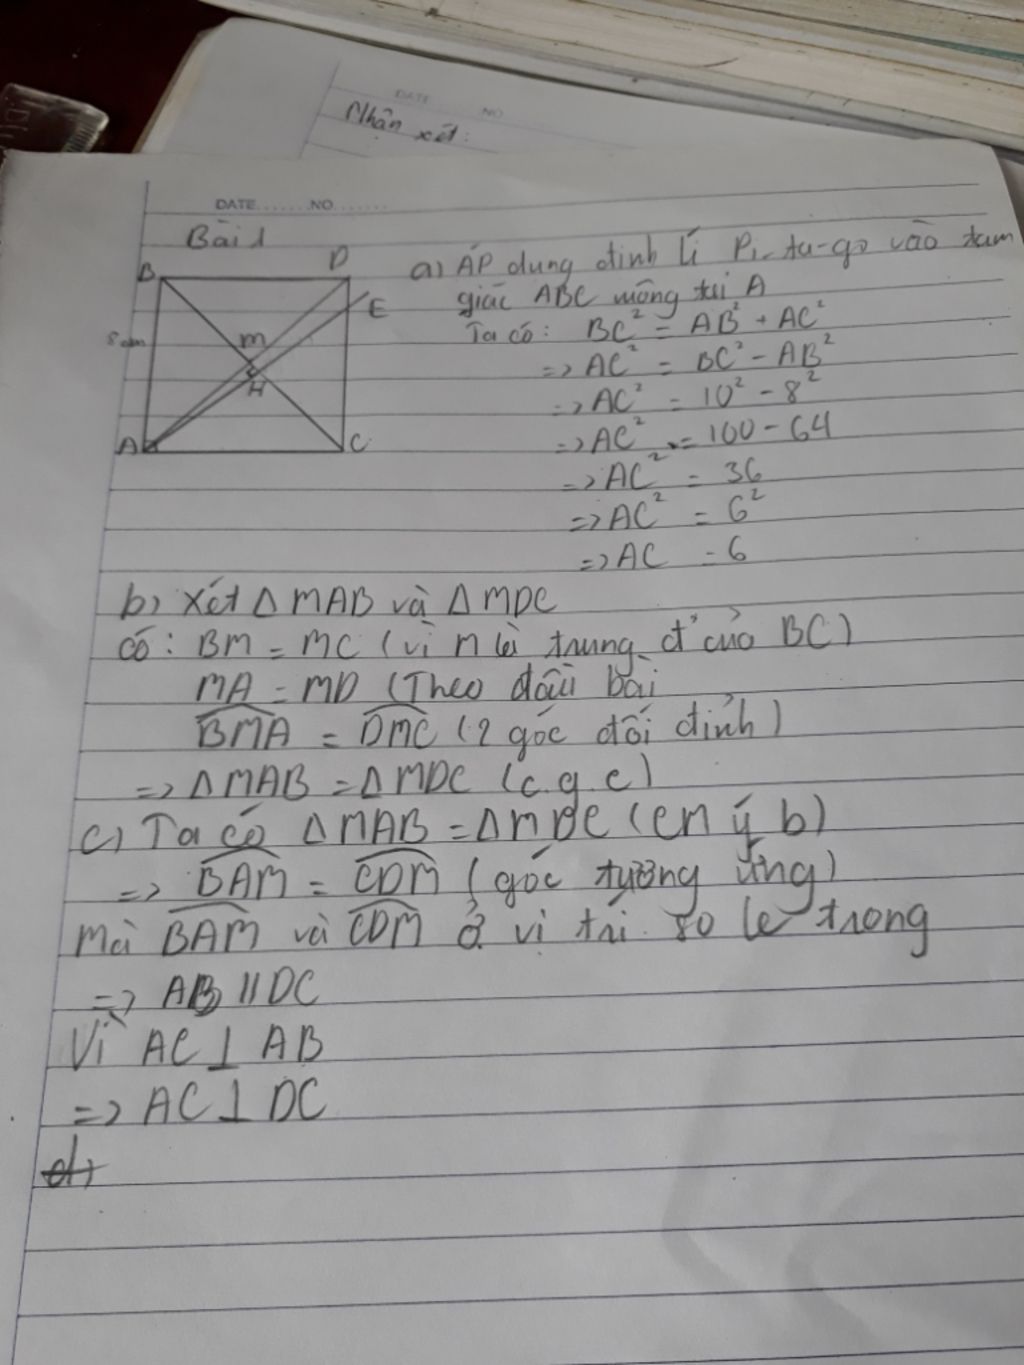 DATE NO
Nhận xét:
DATE.......NO.......
Bài 1
B D
E
8cm M
H
A C
a) ÁP dung định lí Pi-ta-go vào tam
giác ABC tại A
Ta có: BC² = AB² + AC²
=> AC² = BC² - AB²
=> AC² = 10² - 8²
=> AC² = 100 - 64
=> AC² = 36
=> AC² = 6²
=> AC = 6
b) Xét Δ MAB và Δ MDC
có: BM = MC (vì M là trung đ' của BC)
MA = MD (Theo đầu bài
BMA = DMC (2 góc đối đỉnh)
=> Δ MAB = Δ MDC (c.g.c)
c) Ta có Δ MAB = Δ MDC (CM ý b)
=> BAM = CDM (góc tương ứng)
Mà BAM và CDM ở vị trí so le trong
=> AB // DC
Vì AC ⊥ AB
=> AC ⊥ DC